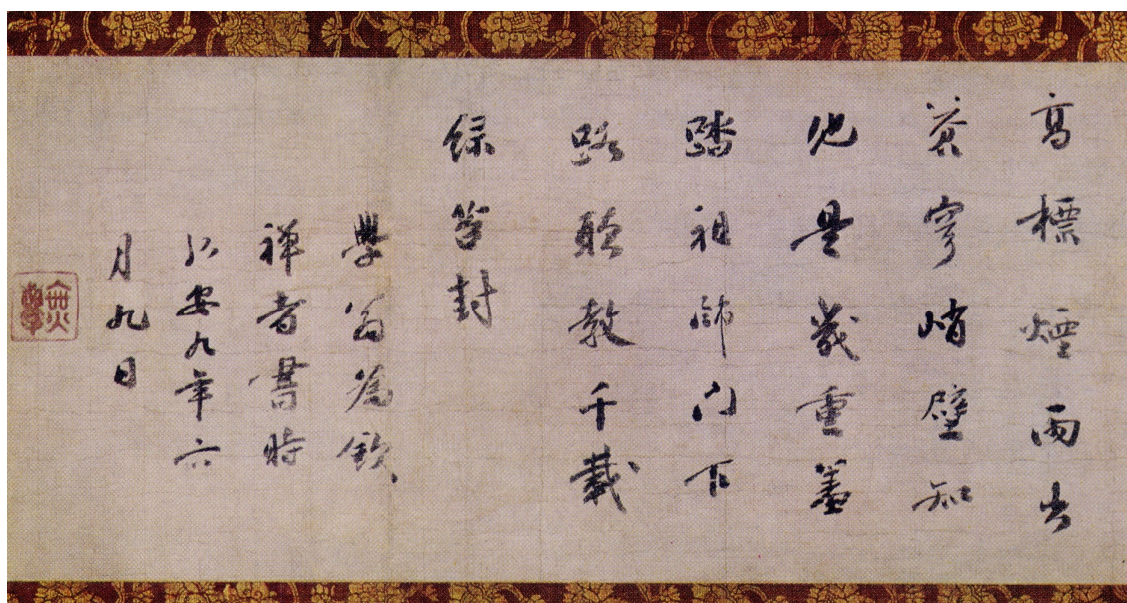 高標煙雨出
蒼穹峭壁知
他是幾重
踏祖師門下
路聴教千載
緑苔封
學翁為欽
禅者書時
弘安九年六
月九日
無學